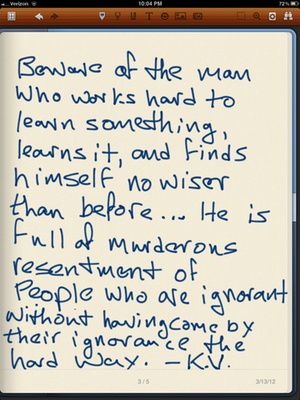 Verizon
10:04 PM
72%
Beware of the man
who works hard to
learn something,
learns it, and finds
himself no wiser
than before... He is
full of murderous
resentment of
people who are ignorant
without having come by
their ignorance the
hard way. - K.V.
3 / 5
3/13/12